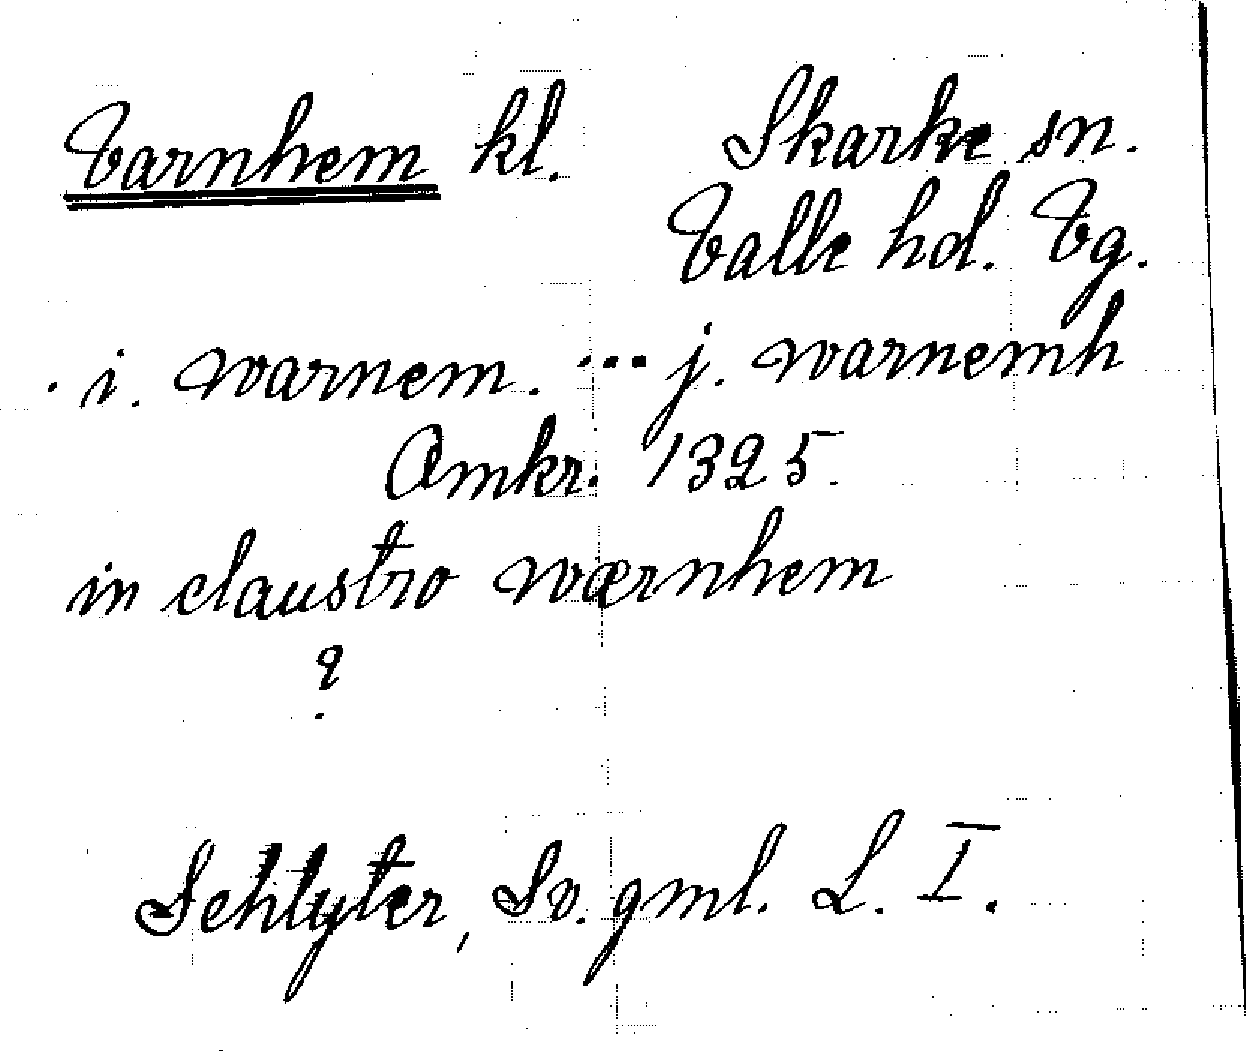 Varnhem kl. Skarke sn.
Valle hd. Vg.
. i. warnem. ... j. warnemh
Omkr. 1325.
in claustro wærnhem
?
Schlyter, Sv. gml. L. I.